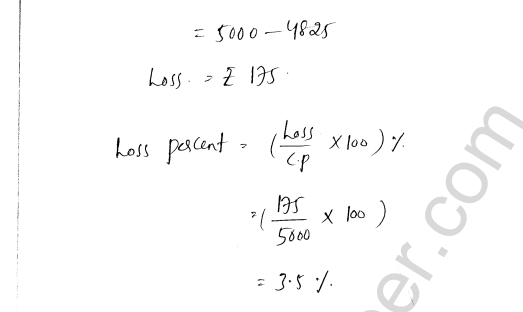 = 5000 - 4825
Loss. = ₹ 175.
Loss percent = (Loss/C.P × 100) %.
= (175/5000 × 100)
= 3.5 %.
er.com